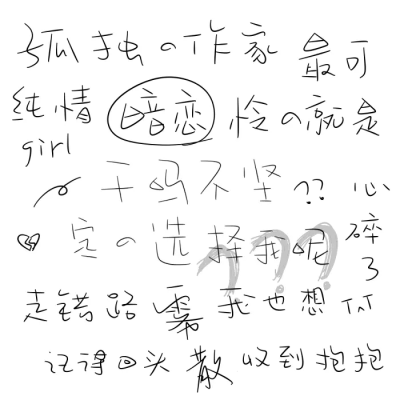 孤独の作家 最可
纯情 暗恋 怜の就是
girl
干吗不坚?? 心
定の选择我呢 碎
??? 了
走错路 我也想
记得回头 散 收到抱抱